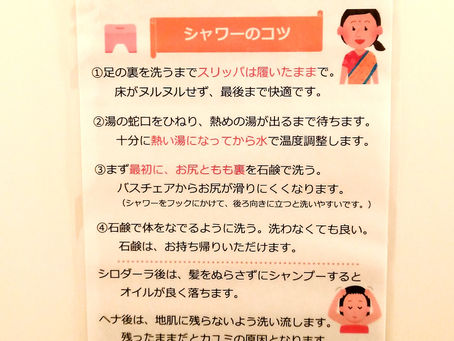 シャワーのコツ
①足の裏を洗うまでスリッパは履いたままで。
床がヌルヌルせず、最後まで快適です。
②湯の蛇口をひねり、熱めの湯が出るまで待ちます。
十分に熱い湯になってから水で温度調整します。
③まず最初に、お尻ともも裏を石鹸で洗う。
バスチェアからお尻が滑りにくくなります。
（シャワーをフックにかけて、後ろ向きに立つと洗いやすいです。）
④石鹸で体をなでるように洗う。洗わなくても良い。
石鹸は、お持ち帰りいただけます。
シロダーラ後は、髪をぬらさずにシャンプーすると
オイルが良く落ちます。
ヘナ後は、地肌に残らないよう洗い流します。
残ったままだとカユミの原因となります。